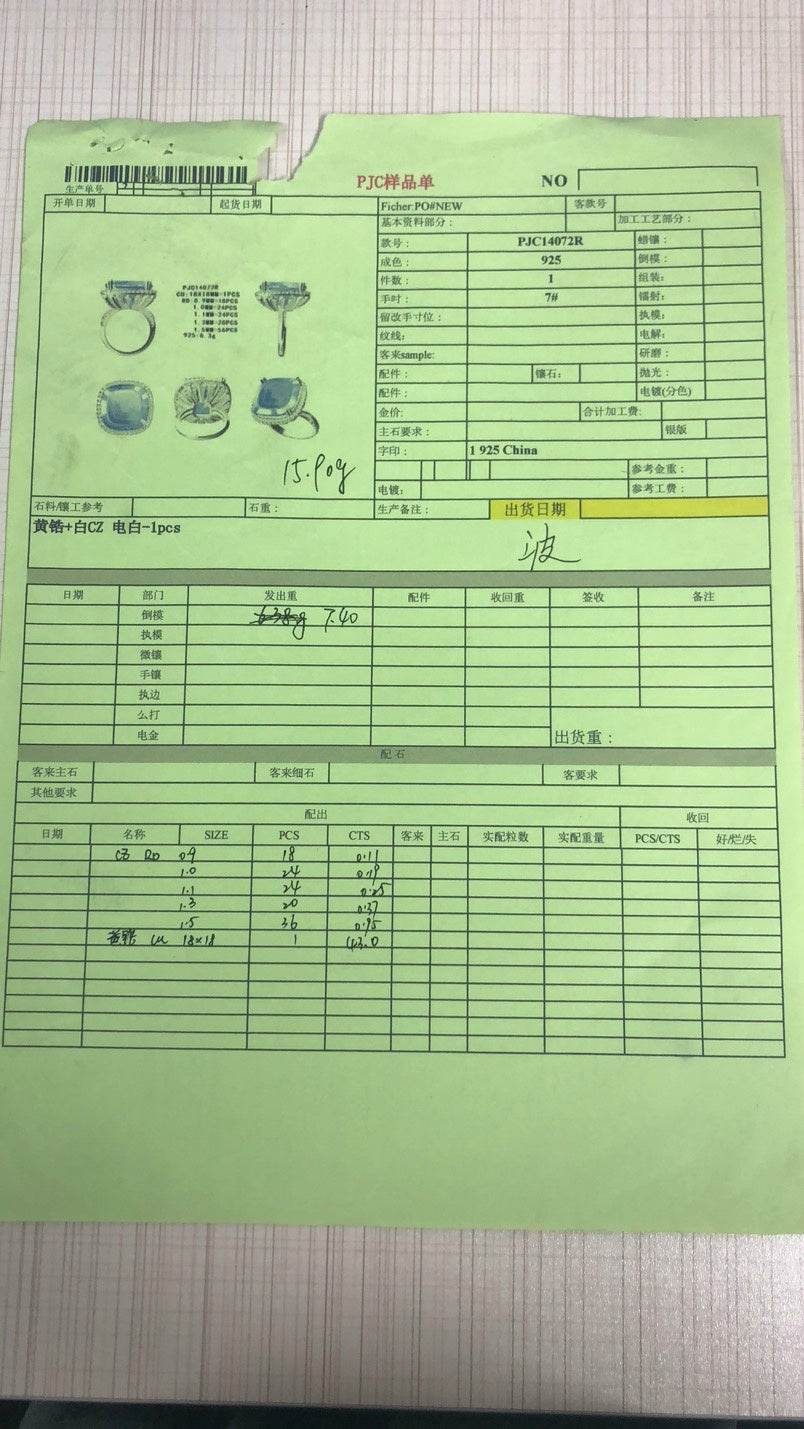 PJC样品单 NO
生产单号
开单日期 起货日期 Ficher:PO#NEW 客款号
基本资料部分： 加工工艺部分：
款号： PJC14072R 蜡镶：
成色： 925 倒模：
件数： 1 组装：
手寸： 7# 镭射：
留改手寸位： 执模：
纹线： 电解：
客来sample: 研磨：
配件： 镶石： 抛光：
配件： 电镀(分色)
金价: 合计加工费:
主石要求： 银版
字印： 1 925 China
参考金重：
电镀： 参考工费：
PJC14072R
CU:18X18MM-1PCS
RD:0.9MM-18PCS
1.0MM-24PCS
1.1MM-24PCS
1.3MM-20PCS
1.5MM-36PCS
925:6.3g
15.90g
石料/镶工参考 石重： 生产备注： 出货日期
黄锆+白CZ 电白-1pcs
波
日期 部门 发出重 配件 收回重 签收 备注
倒模 6.38g 7.40
执模
微镶
手镶
执边
么打
电金 出货重：
配石
客来主石 客来细石 客要求
其他要求
配出 收回
日期 名称 SIZE PCS CTS 客来 主石 实配粒数 实配重量 PCS/CTS 好/烂/失
CZ RD 0.9 18 0.11
1.0 24 0.19
1.1 24 0.25
1.3 20 0.37
1.5 36 0.95
黄锆 CU 18×18 1 43.0